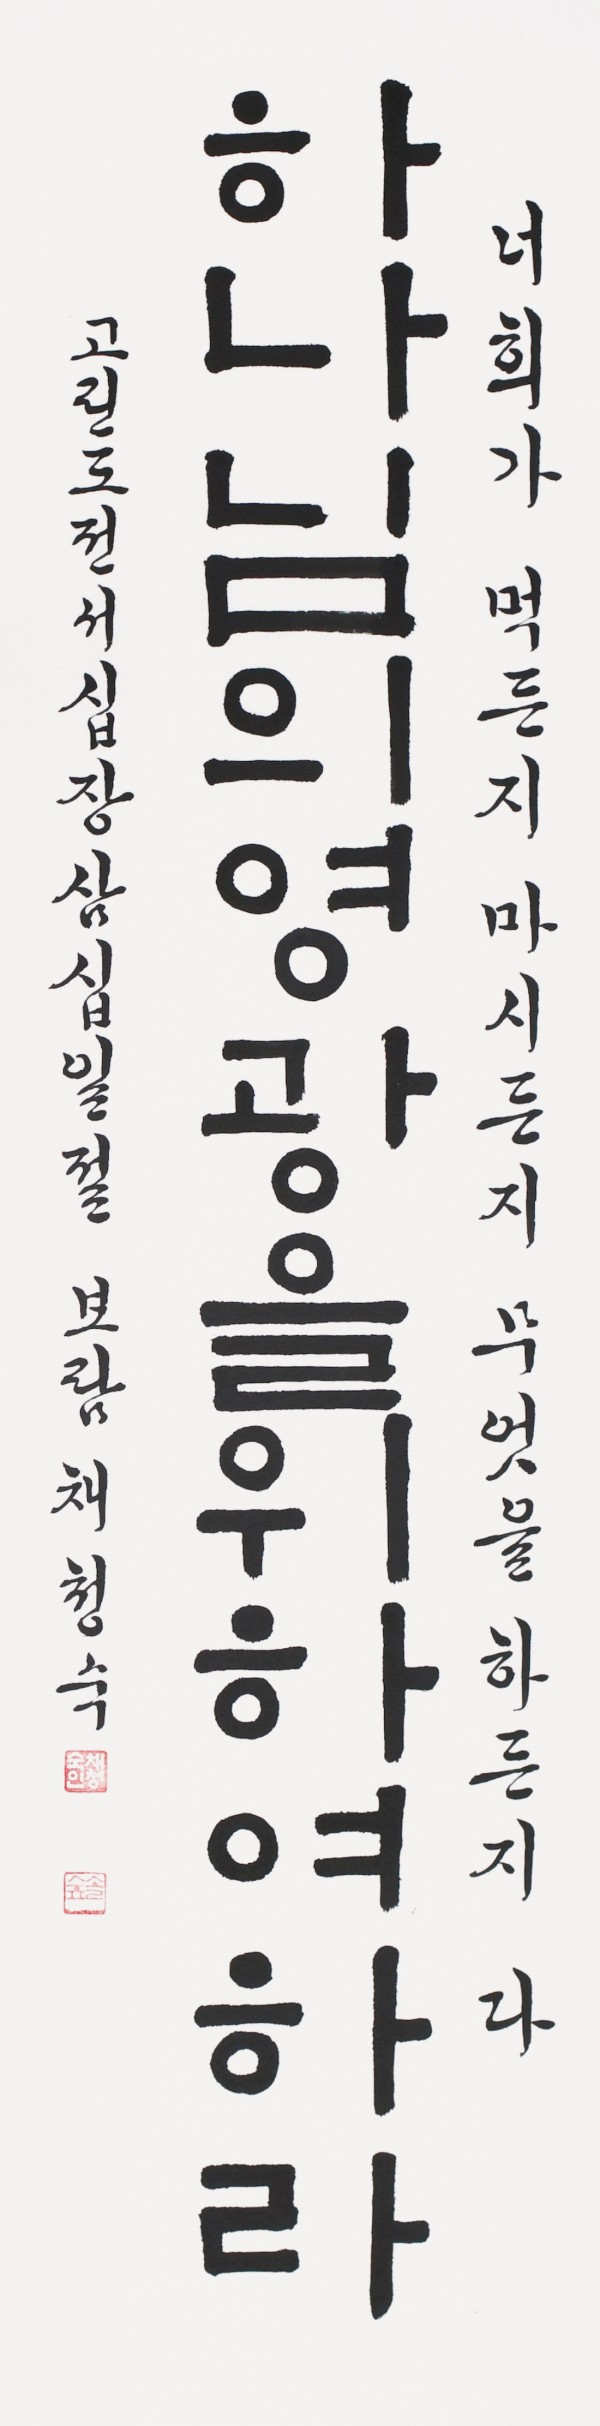 너희가 먹든지 마시든지 무엇을 하든지 다
하나님의영광을위하여하라
고린도전서십장삼십일절 보람 채청숙